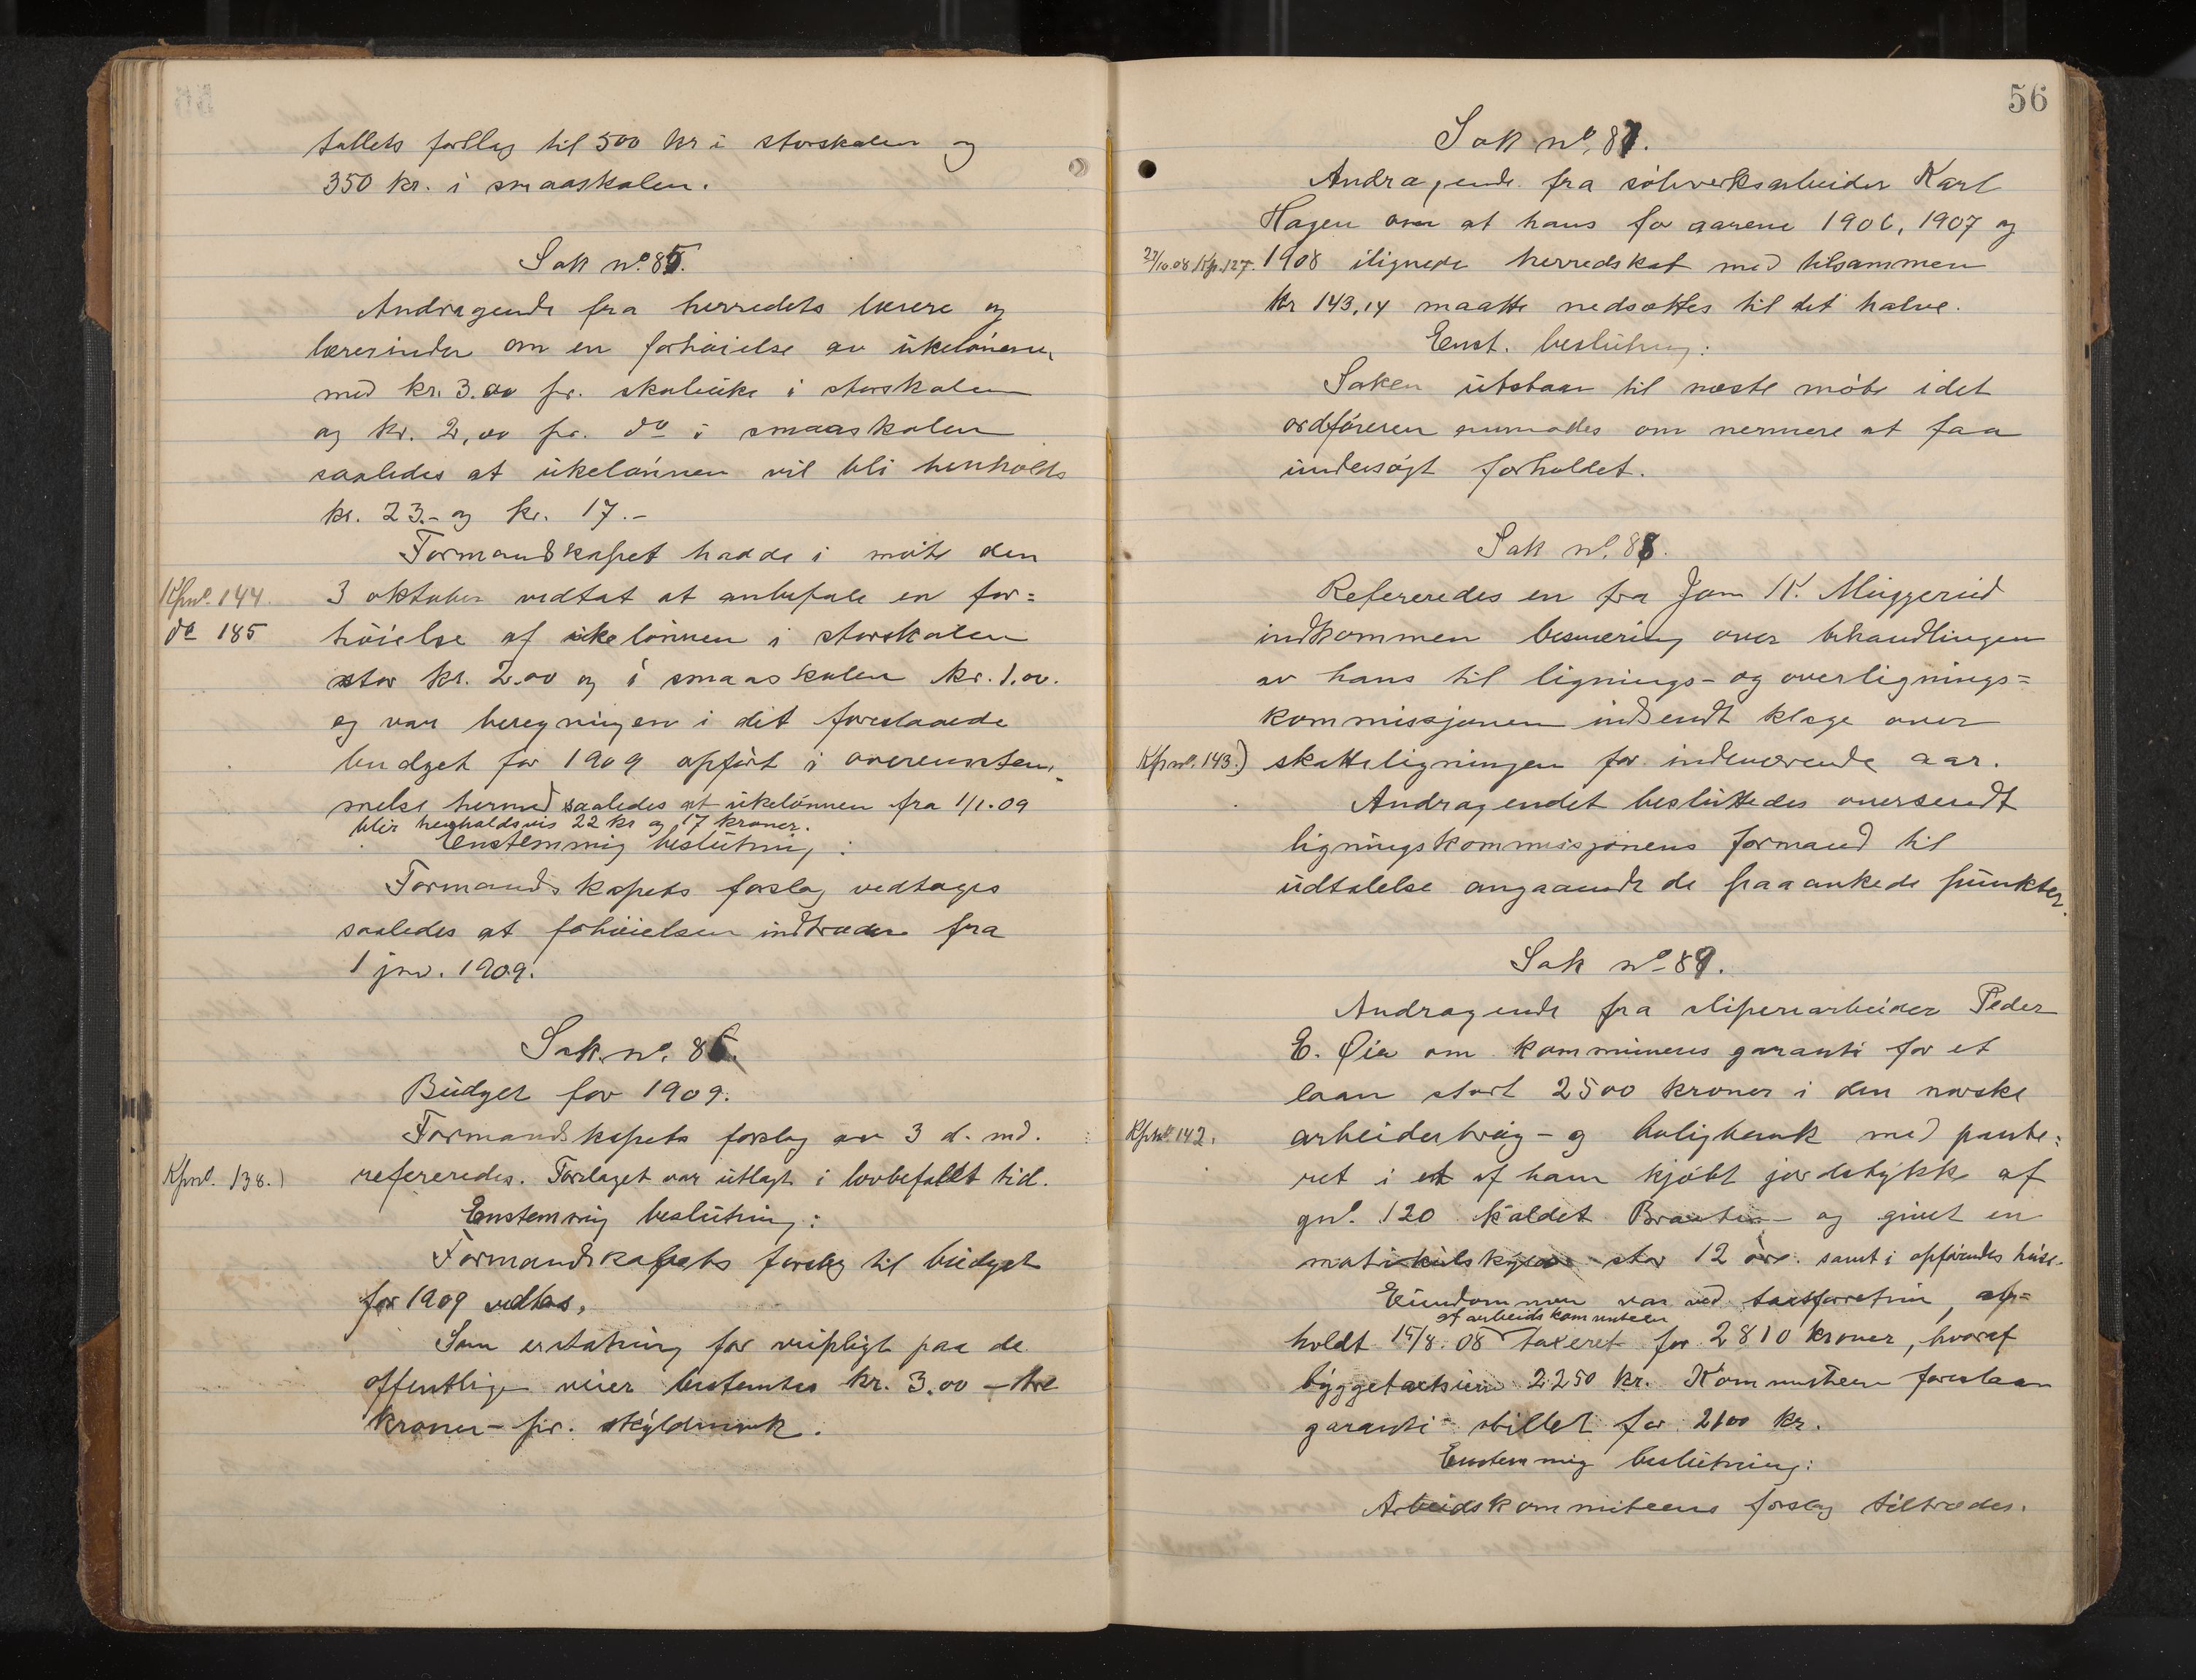 tallets forslag til 500 kr i storskolen og
350 kr. i smaaskolen.
Sak no. 85.
Andragende fra herredets lærere og
lærerinder om en forhøielse av ukelønnen
med kr. 3.00 pr. skoleuke i storskolen
og kr. 2,00 pr. do i smaaskolen
saaledes at ukelønnen vil bli henholds
kr. 23.- og kr. 17.-
Formandskapet hadde i møte den
Kpno. 144. 3 oktober vedtat at anbefale en for=
do 185 høielse af ukelønnen i storskolen
stor kr. 2.00 og i smaaskolen kr. 1.00.
og var beregningen i det foreslaaede
budget for 1909 opført i overenstem=
melse hermed saaledes at ukelønnen fra 1/1.09
blir henholdsvis 22 kr og 17 kroner.
Enstemmig beslutning:
Formandskapets forslag vedtages
saaledes at forhøielsen indtræder fra
1 jan. 1909.
Sak no. 86.
Budget for 1909.
Formandskapets forslag av 3 d. md.
Kpno. 138.) refereredes. Forslaget var utlagt i lovbefalt tid.
Enstemmig beslutning:
Formandskapets forslag til budget
for 1909 vedtas.
Som erstatning for veipligt paa de
offentlige veier bestemtes kr. 3.00 - tre
kroner - pr. skyldmark.
56
Sak no. 87.
Andragende fra sølvverksarbeider Karl
Hagen om at hans for aarene 1906, 1907 og
27/10.08 Kp. 127. 1908 ilignede herredskat med tilsammen
kr 143,14 maatte nedsættes til det halve.
Enst. beslutning:
Saken utstaar til næste møte idet
ordføreren anmodes om nermere at faa
undersøgt forholdet.
Sak no. 88.
Refereredes en fra Jam K. Muggerud
indkommen besværing over behandlingen
av hans til lignings- og overlignings=
kommissjonen indsendt klage over
Kpno. 143.) skatteligningen for indeværende aar.
Andragendet besluttedes oversendt
ligningskommissjonens formand til
udtalelse angaaende de paaankede punkter.
Sak no. 89.
Andragende fra sliperiarbeider Peder
E. Øia om kommunens garanti for et
laan stort 2500 kroner i den norske
Kpno. 142. arbeiderbrug- og boligbank med pante=
ret i et af ham kjøbt jordstykke af
gno. 120 kaldet Braaten og givet en
matrikulskyld stor 12 øre. samt i opførendes huse.
Eiendommen var ved taxtforretnin, op=
af arbeidskommiteen
holdt 15/8. 08 taxeret for 2810 kroner, hvoraf
byggetaxtsum 2250 kr. Kommiteen foreslaar
garanti stillet for 2100 kr.
Enstemmig beslutning:
Arbeidskommiteens forslag tiltrædes.